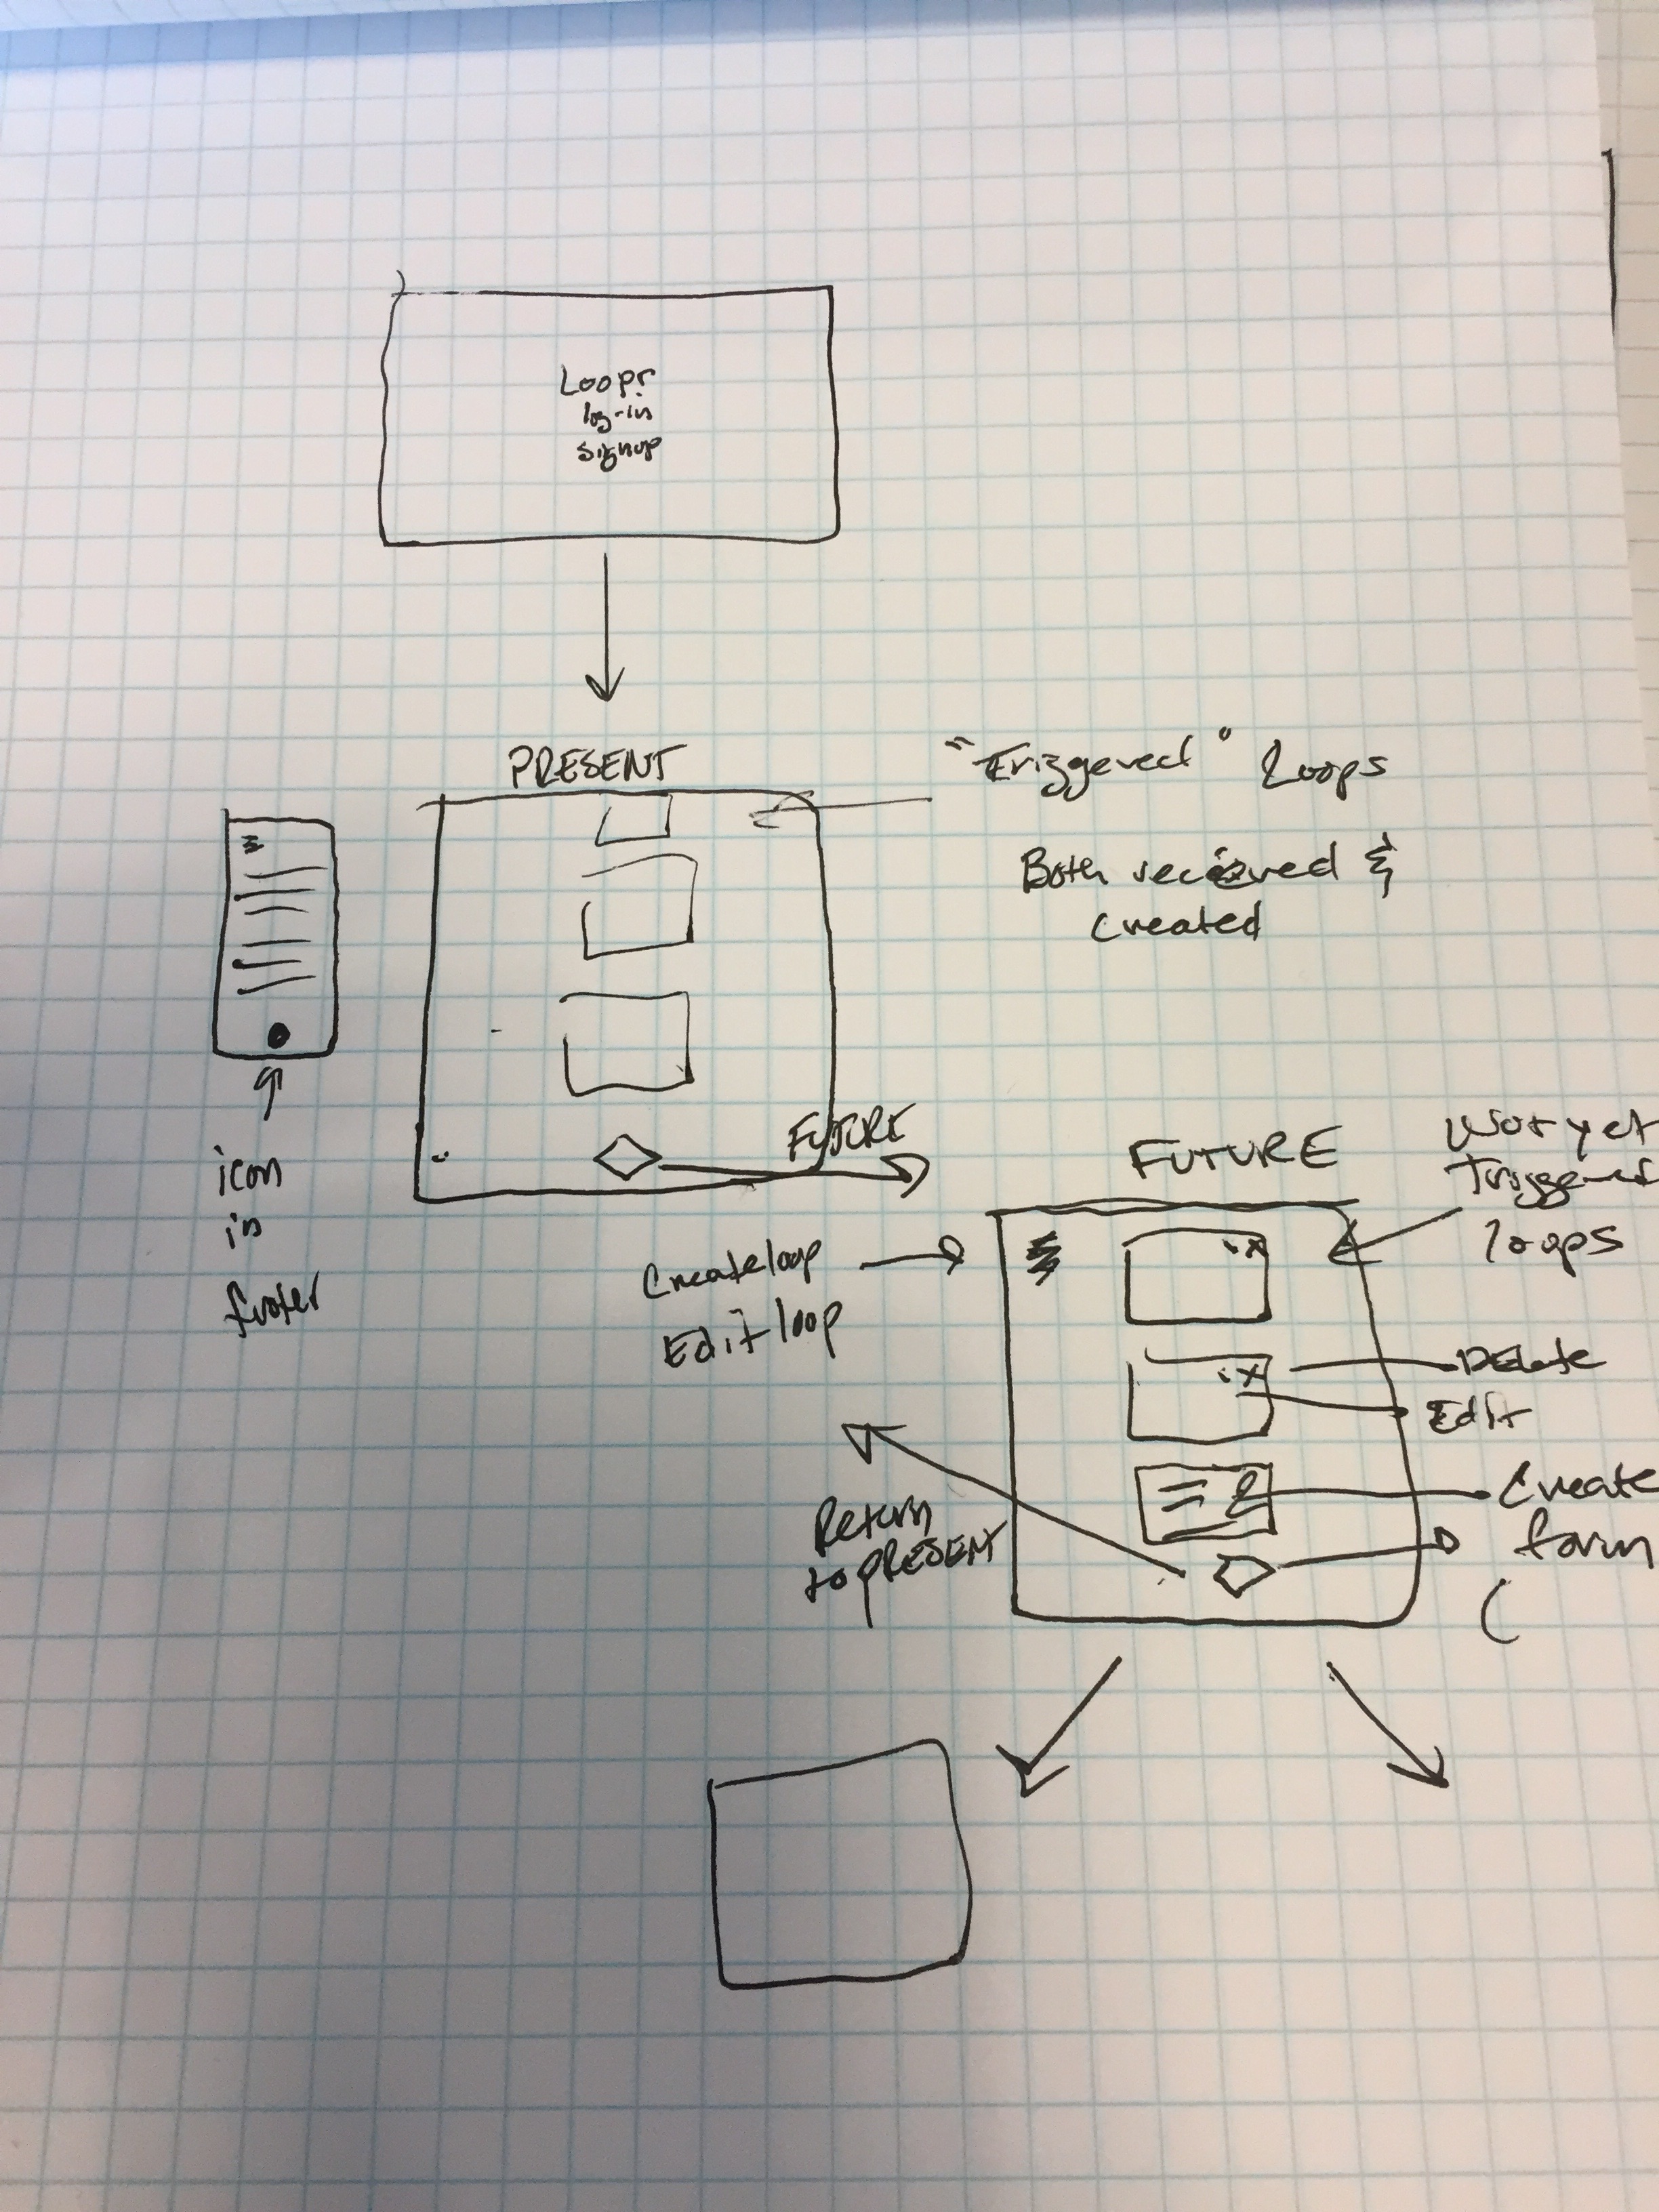 Loopr
log-in
signup
PRESENT
"Triggered" Loops
Both recieved &
created
FUTURE
icon
in
footer
FUTURE
Not yet
Triggered
loops
Create loop
Edit loop
Delete
Edit
Create
form
(
Return
to PRESENT